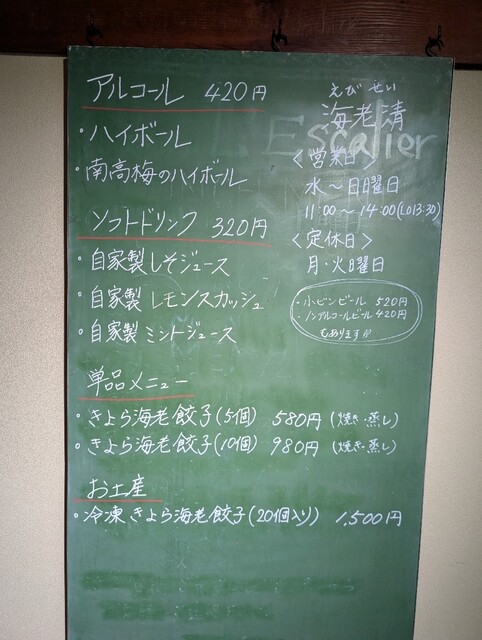 アルコール 420円
・ハイボール
・南高梅のハイボール
ソフトドリンク 320円
・自家製しそジュース
・自家製 レモンスカッシュ
・自家製 ミントジュース
単品メニュー
・きよら海老餃子(5個) 580円 (焼き・蒸し)
・きよら海老餃子(10個) 980円 (焼き・蒸し)
お土産
・冷凍 きよら海老餃子(20個入り) 1,500円
えび せい
海老清
Escalier
〈営業日〉
水〜日曜日
11:00〜14:00(LO13:30)
〈定休日〉
月・火曜日
・小ビンビール 520円
・ノンアルコールビール 420円
もあります